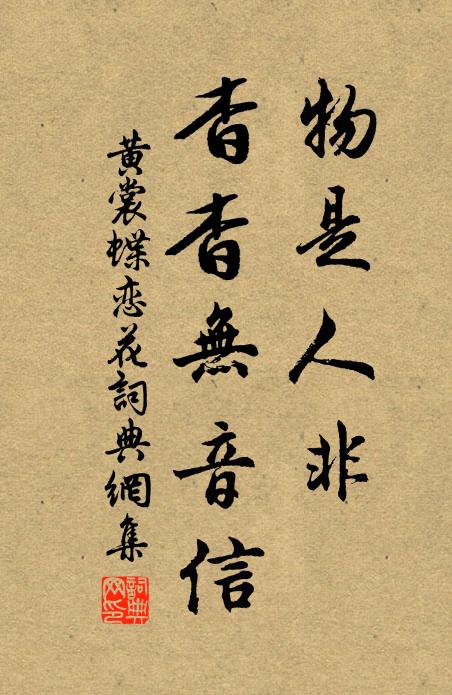 物是人非
杳杳無音信
黄裳蝶恋花詞典網集
詞典網印